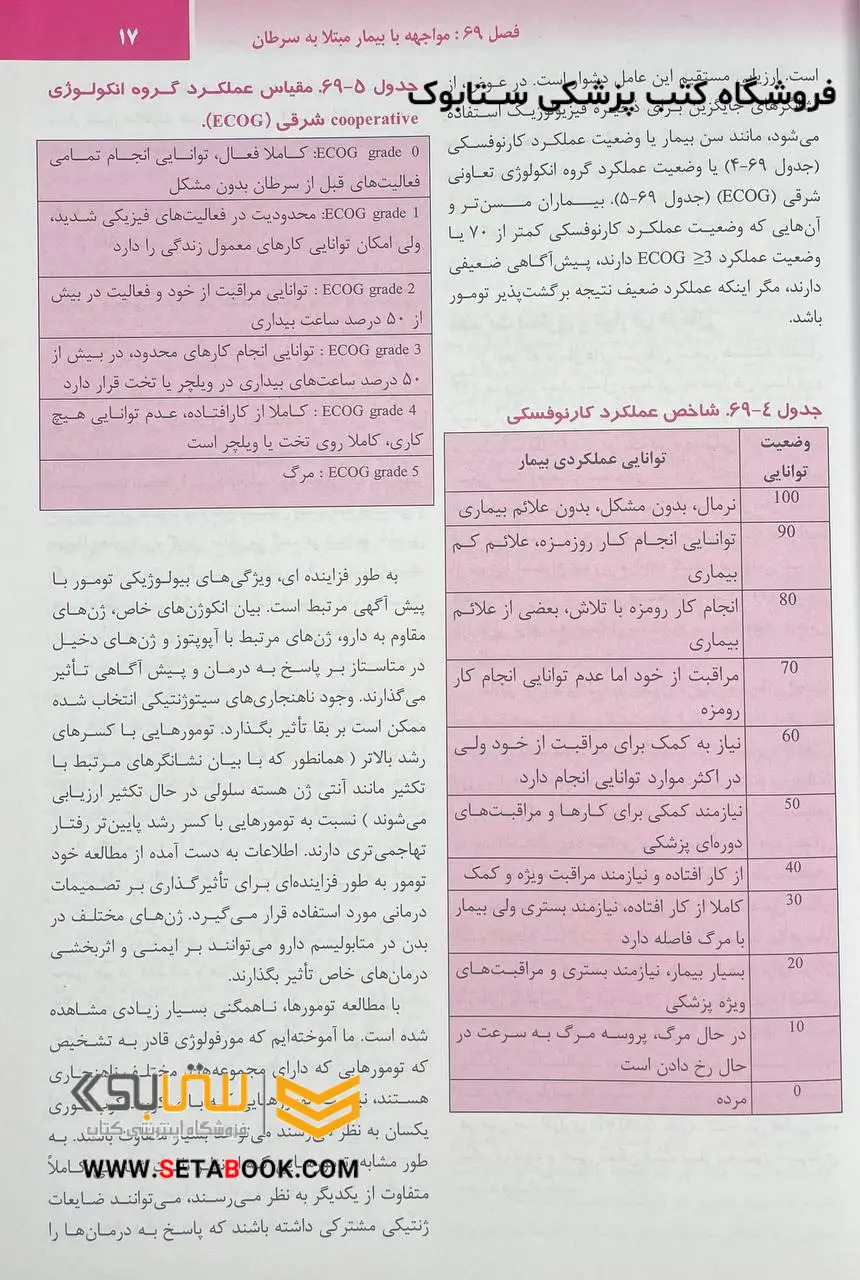 ۱۷
فصل ۶۹ : مواجهه با بیمار مبتلا به سرطان
فروشگاه کتب پزشکی ستابوک
است. ارزیابی مستقیم این عامل دشوار است. در عوض، از
جایگزین برای ذخیره فیزیولوژیک استفاده
می‌شود، مانند سن بیمار یا وضعیت عملکرد کارنوفسکی
(جدول ۶۹-۴) یا وضعیت عملکرد گروه انکولوژی تعاونی
شرقی (ECOG) (جدول ۶۹-۵). بیماران مسن‌تر و
آن‌هایی که وضعیت عملکرد کارنوفسکی کمتر از ۷۰ یا
وضعیت عملکرد ECOG ≥3 دارند، پیش‌آگاهی ضعیفی
دارند، مگر اینکه عملکرد ضعیف نتیجه برگشت‌پذیر تومور
باشد.
جدول ۴-۶۹. شاخص عملکرد کارنوفسکی
وضعیت توانایی
توانایی عملکردی بیمار
100
نرمال، بدون مشکل، بدون علائم بیماری
90
توانایی انجام کار روزمزه، علائم کم
بیماری
80
انجام کار رومزه با تلاش، بعضی از علائم
بیماری
70
مراقبت از خود اما عدم توانایی انجام کار
رومزه
60
نیاز به کمک برای مراقبت از خود ولی
در اکثر موارد توانایی انجام دارد
50
نیازمند کمکی برای کارها و مراقبت‌های
دوره‌ای پزشکی
40
از کار افتاده و نیازمند مراقبت ویژه و کمک
30
کاملا از کار افتاده، نیازمند بستری ولی بیمار
با مرگ فاصله دارد
20
بسیار بیمار، نیازمند بستری و مراقبت‌های
ویژه پزشکی
10
در حال مرگ، پروسه مرگ به سرعت در
حال رخ دادن است
0
مرده
جدول ۵-۶۹. مقیاس عملکرد گروه انکولوژی
cooperative شرقی (ECOG).
ECOG grade 0: کاملا فعال، توانایی انجام تمامی
فعالیت‌های قبل از سرطان بدون مشکل
ECOG grade 1: محدودیت در فعالیت‌های فیزیکی شدید،
ولی امکان توانایی کارهای معمول زندگی را دارد
ECOG grade 2 : توانایی مراقبت از خود و فعالیت در بیش
از ۵۰ درصد ساعت بیداری
ECOG grade 3 : توانایی انجام کارهای محدود، در بیش از
۵۰ درصد ساعت‌های بیداری در ویلچر یا تخت قرار دارد
ECOG grade 4 : کاملا از کارافتاده، عدم توانایی هیچ
کاری، کاملا روی تخت یا ویلچر است
ECOG grade 5 : مرگ
به طور فزاینده ای، ویژگی‌های بیولوژیکی تومور با
پیش آگهی مرتبط است. بیان انکوژن‌های خاص، ژن‌های
مقاوم به دارو، ژن‌های مرتبط با آپوپتوز و ژن‌های دخیل
در متاستاز بر پاسخ به درمان و پیش آگاهی تأثیر
می‌گذارند. وجود ناهنجاری‌های سیتوژنتیکی انتخاب شده
ممکن است بر بقا تأثیر بگذارد. تومورهایی با کسرهای
رشد بالاتر ( همانطور که با بیان نشانگرهای مرتبط با
تکثیر مانند آنتی ژن هسته سلولی در حال تکثیر ارزیابی
می‌شوند ) نسبت به تومورهایی با کسر رشد پایین‌تر رفتار
تهاجمی‌تری دارند. اطلاعات به دست آمده از مطالعه خود
تومور به طور فزاینده‌ای برای تأثیرگذاری بر تصمیمات
درمانی مورد استفاده قرار می‌گیرد. ژن‌های مختلف در
بدن در متابولیسم دارو می‌توانند بر ایمنی و اثربخشی
درمان‌های خاص تأثیر بگذارند.
با مطالعه تومورها، ناهمگنی بسیار زیادی مشاهده
شده است. ما آموخته‌ایم که مورفولوژی قادر به تشخیص
که تومورهایی که دارای مجموعه‌های مختلف ناهنجاری
هستند،
یکسان به نظر می‌رسند باشند. به
طور مشابه، کاملاً
متفاوت از یکدیگر به نظر می‌رسند، می‌توانند ضایعات
ژنتیکی مشترکی داشته باشند که پاسخ به درمان‌ها را
ستابوک
فروشگاه اینترنتی کتاب
WWW.SETABOOK.COM